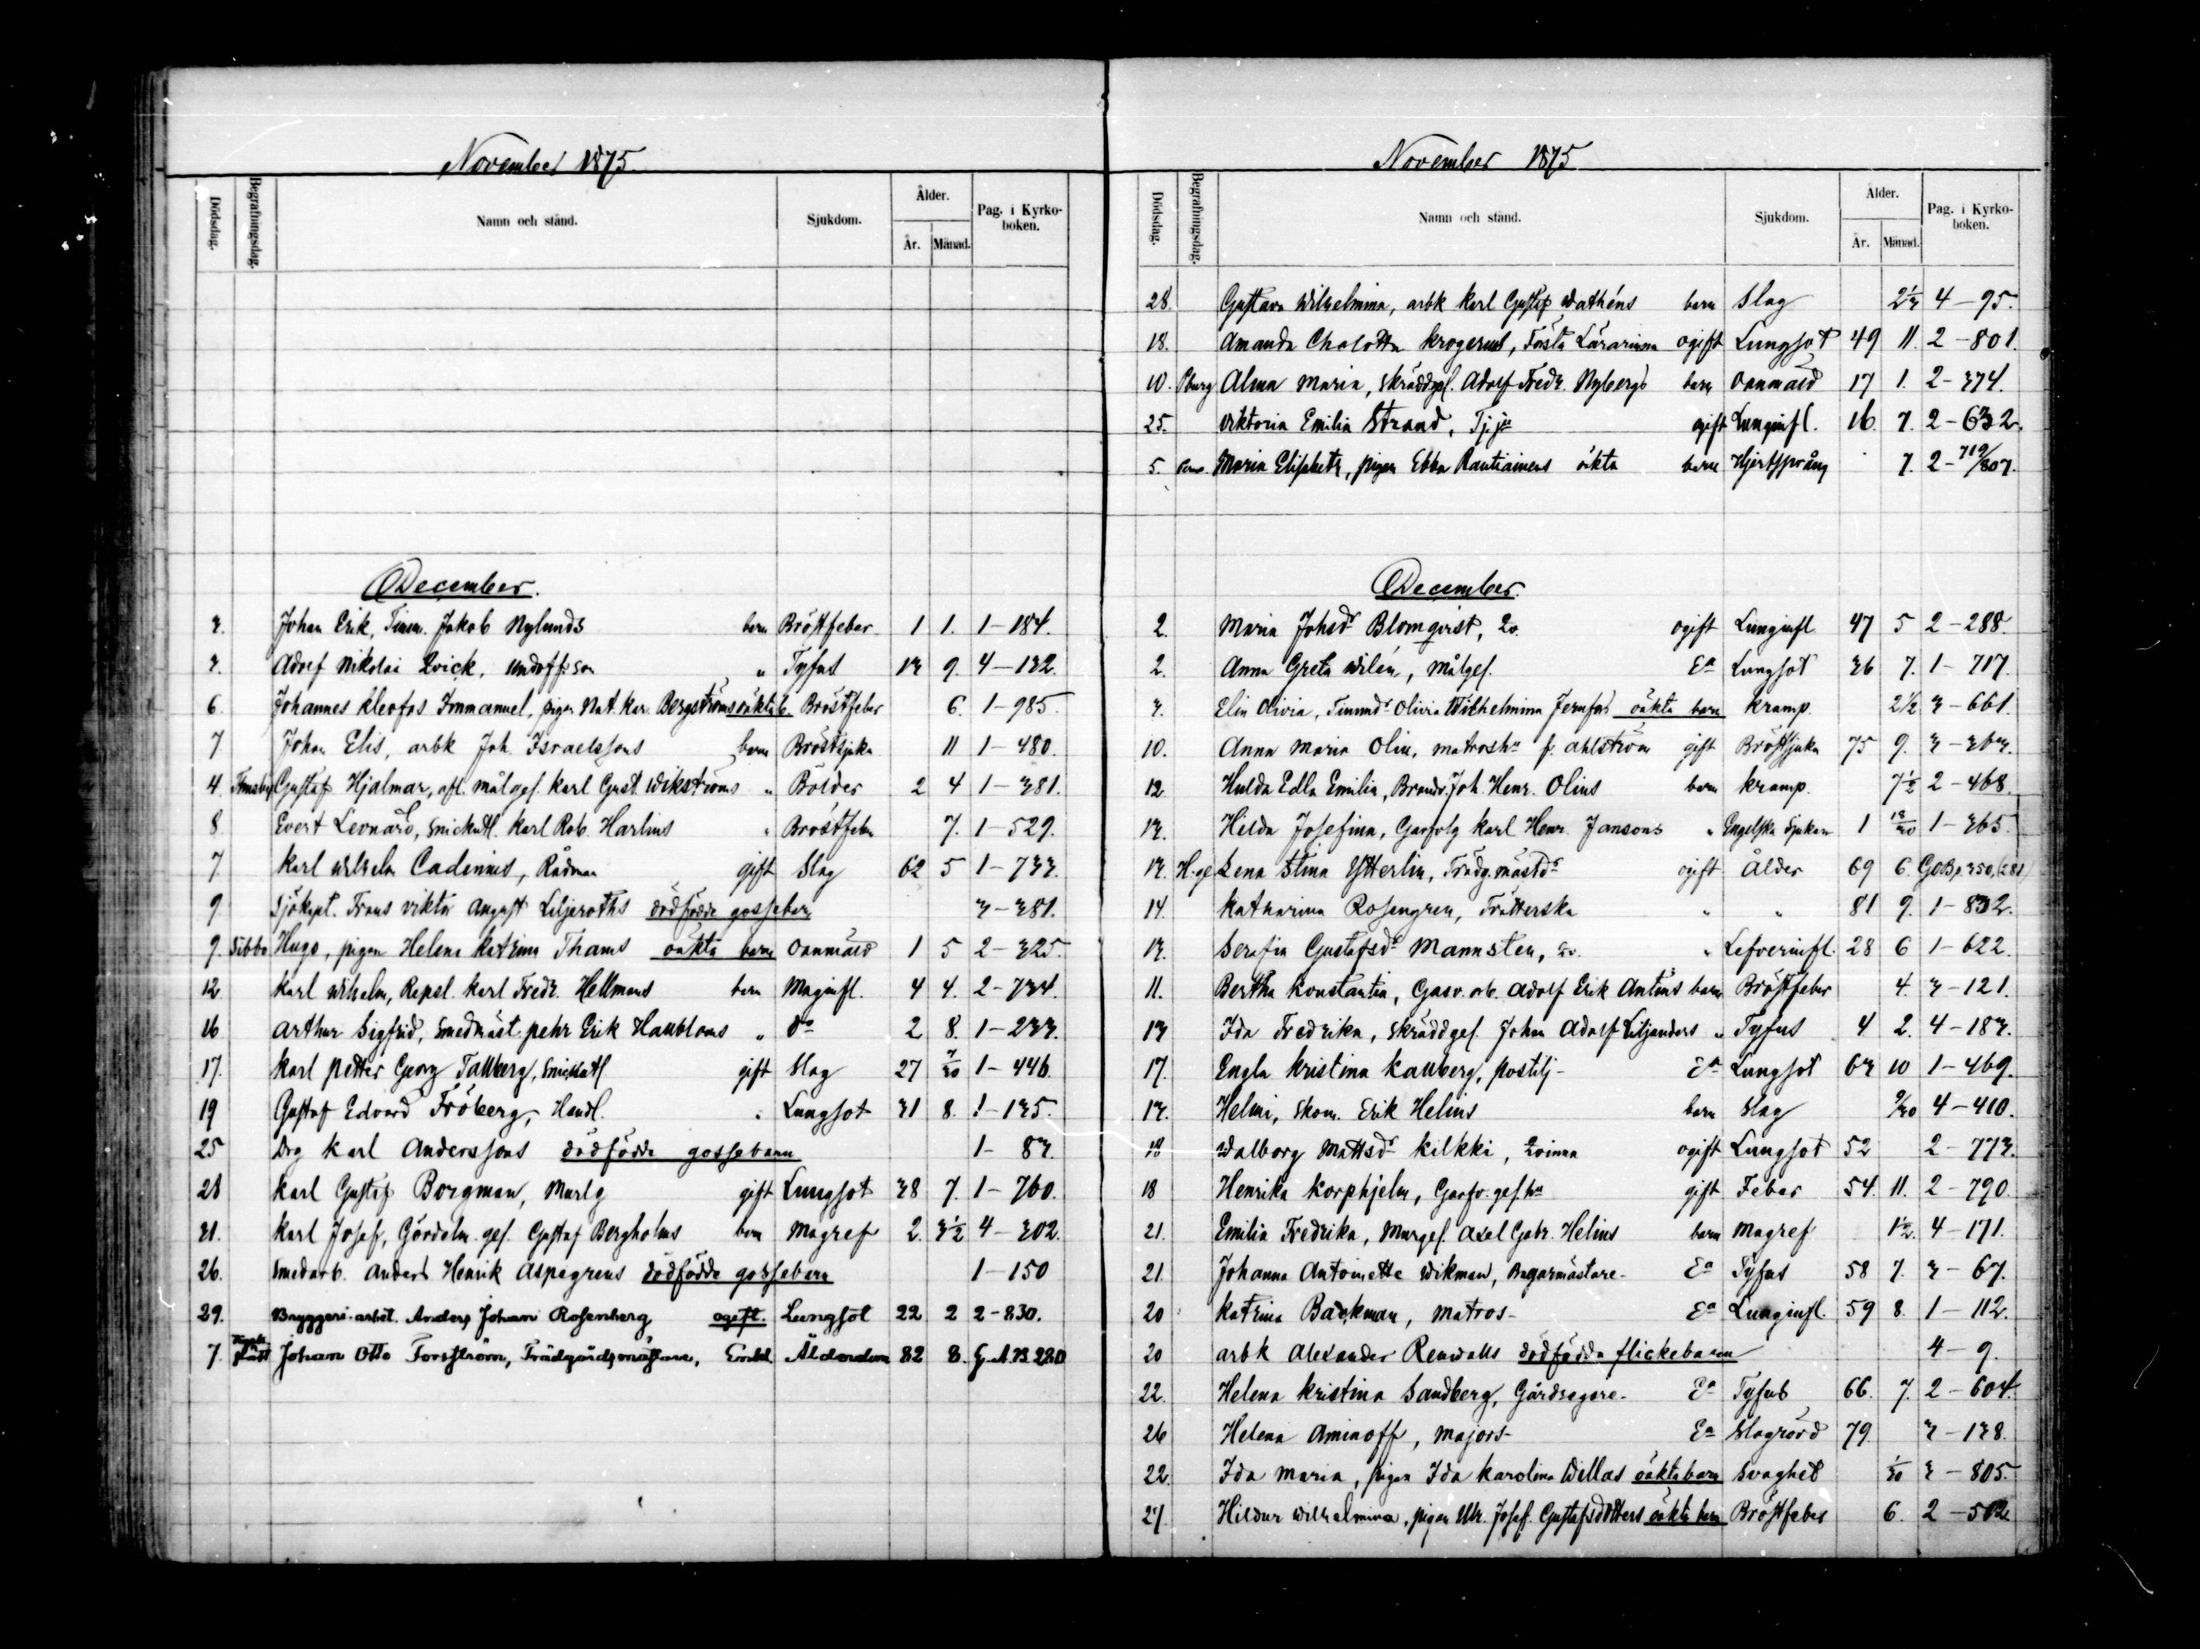 November 1875.
Dödsdag. Begrafningsdag. Namn och stånd. Sjukdom. Ålder. År. Månad. Pag. i Kyrkoboken.
December.
3. Johan Erik, Timm. Jakob Nylunds barn Bröstfeber 1 1. 1-184.
3. Adolf Nikolai Qvick, Undoff: son " Tyfus 13 9. 4-132.
6. Johannes Kleofas Immanuel, pigan Nat. Kar. Bergströms oäkta b. Bröstfeber 6. 1-985.
7. Johan Elis, arbk Joh. Israelssons barn Bröstsjuka 11 1-480.
4. Gustaf Hjalmar, afl. målges. Karl Gust. Wikströms " Bölder 2 4 1-381.
8. Evert Leonard, Snickarl. Karl Rob. Harlins " Bröstfeber 7. 1-529.
7. Karl Wilhelm Cadenius, Rådman gift Slag 62 5 1-733.
9. Sjökapt. Frans Viktor August Liljeroths dödfödda gossebarn 3-381.
9. Sibbo Hugo, pigan Helena Katrina Thams oäkta barn Oanmäld 1 5 2-325.
12. Karl Wilhelm, Repsl. Karl Fredr. Hellmans barn Maginfl. 4 4. 2-734.
16 Arthur Sigfrid, Smedmäst. Pehr Erik Haubloms " do 2 8. 1-233.
17. Karl Petter Georg Tallberg, Snickarl gift Slag 27 7/30 1-446.
19 Gustaf Edvard Fröberg, Handl. " Lungsot 31 8. 1-135.
25 Drg Karl Anderssons dödfödda gossebarn 1-83.
28 Karl Gustaf Borgman, Murlg gift Lungsot 38 7. 1-760.
31. Karl Josef, Gördelm. ges. Gustaf Bergholms barn Magref 2. 3½ 4-302.
26. Smedarb. Anders Henrik Aspegrens dödfödda gossebarn 1-150
29. Bryggeri-arbet. Anders Johan Rosenberg ogift. Lungsot 22 2 2-830.
7. Johan Otto Forsström, Trädgårdsmästare, Enkl. Ålderdom 82 8. G.A.B. 280
November 1875
Dödsdag. Begrafningsdag. Namn och stånd. Sjukdom. Ålder. År. Månad. Pag. i Kyrkoboken.
28. Gustava Wilhelmina, arbk Karl Gustaf Wathéns barn Slag 2⅓ 4-95.
18. Amanda Cholotta Krogerus, Första Lärarinna ogift Lungsot 49 11. 2-801.
10. Pburg Alma Maria, Skräddges. Adolf Fredr. Nybergs barn Oanmäld 17 1. 2-374.
25. Viktoria Emilia Strand, Tj.ja ogift Lunginfl. 16. 7. 2-632.
5. Maria Elisabeth, pigan Ebba Rautiainens oäkta barn Hjertsprång 7. 2-719/807.
December.
2. Maria Johsdr Blomqvist, Qv. ogift Lunginfl 47 5 2-288.
2. Anna Greta Wilén, Målges. Ea Lungsot 36 7. 1-717.
3. Elin Olivia, Timmds Olivia Wilhelmina Jernfors oäkta barn Kramp. 2½ 3-661.
10. Anna Maria Olin, matroshu f. Ahlström gift Bröstsjuka 75 9. 3-363.
12 Hulda Edla Emilia, Brandv. Joh. Henr. Olins barn Kramp. 7½ 2-468.
13. Hilda Josefina, Garfvlg Karl Henr. Jansons " Engelska Sjukan 1 12/30 1-365.
13. Lena Stina Ytterlin, Trädg.mästdr ogift Ålder 69 6. GoBp. 350,(281)
14. Katharina Rosengren, Tvätterska " " 81 9. 1-832.
13. Serafia Gustafsdr Mannsten, Qv. " Lefverinfl. 28 6 1-622.
11. Bertha Konstantia, Gasv. arb. Adolf Erik Antins barn Bröstfeber 4. 3-121.
13 Ida Fredrika, Skräddges. Johan Adolf Liljanders " Tyfus 4 2. 4-183.
17. Engla Kristina Kallberg, postilj- Ea Lungsot 63 10 1-469.
13. Helmi, Skom. Erik Helins barn Slag 9/30 4-410.
18 Walborg Mattsdr Kilkki, Qvinna ogift Lungsot 52 2-773.
18 Henrika Korphjelm, Garfv. ges. hu gift Feber 54. 11. 2-790.
21. Emilia Fredrika, Murges. Axel Gabr. Helins barn Magref 1½. 4-171.
21. Johanna Antoinette Wikman, Bagarmästare- Ea Tyfus 58 7. 3-67.
20 Katrina Backman, Matros- Ea Lunginfl. 59 8. 1-112.
20 arbk Alexander Renwalls dödfödda flickebarn 4-9.
22. Helena Kristina Sandberg, Gårdsegare- Ea Tyfus 66. 7. 2-604.
26 Helena Aminoff, Majors- Ea Slagrörd 79. 3-138.
22. Ida Maria, pigan Ida Karolina Willas oäkta barn Svaghet 1/30 3-805.
27. Hildur Wilhelmina, pigan Ulr. Josef. Gustafsdotters oäkta barn Bröstfeber 6. 2-502